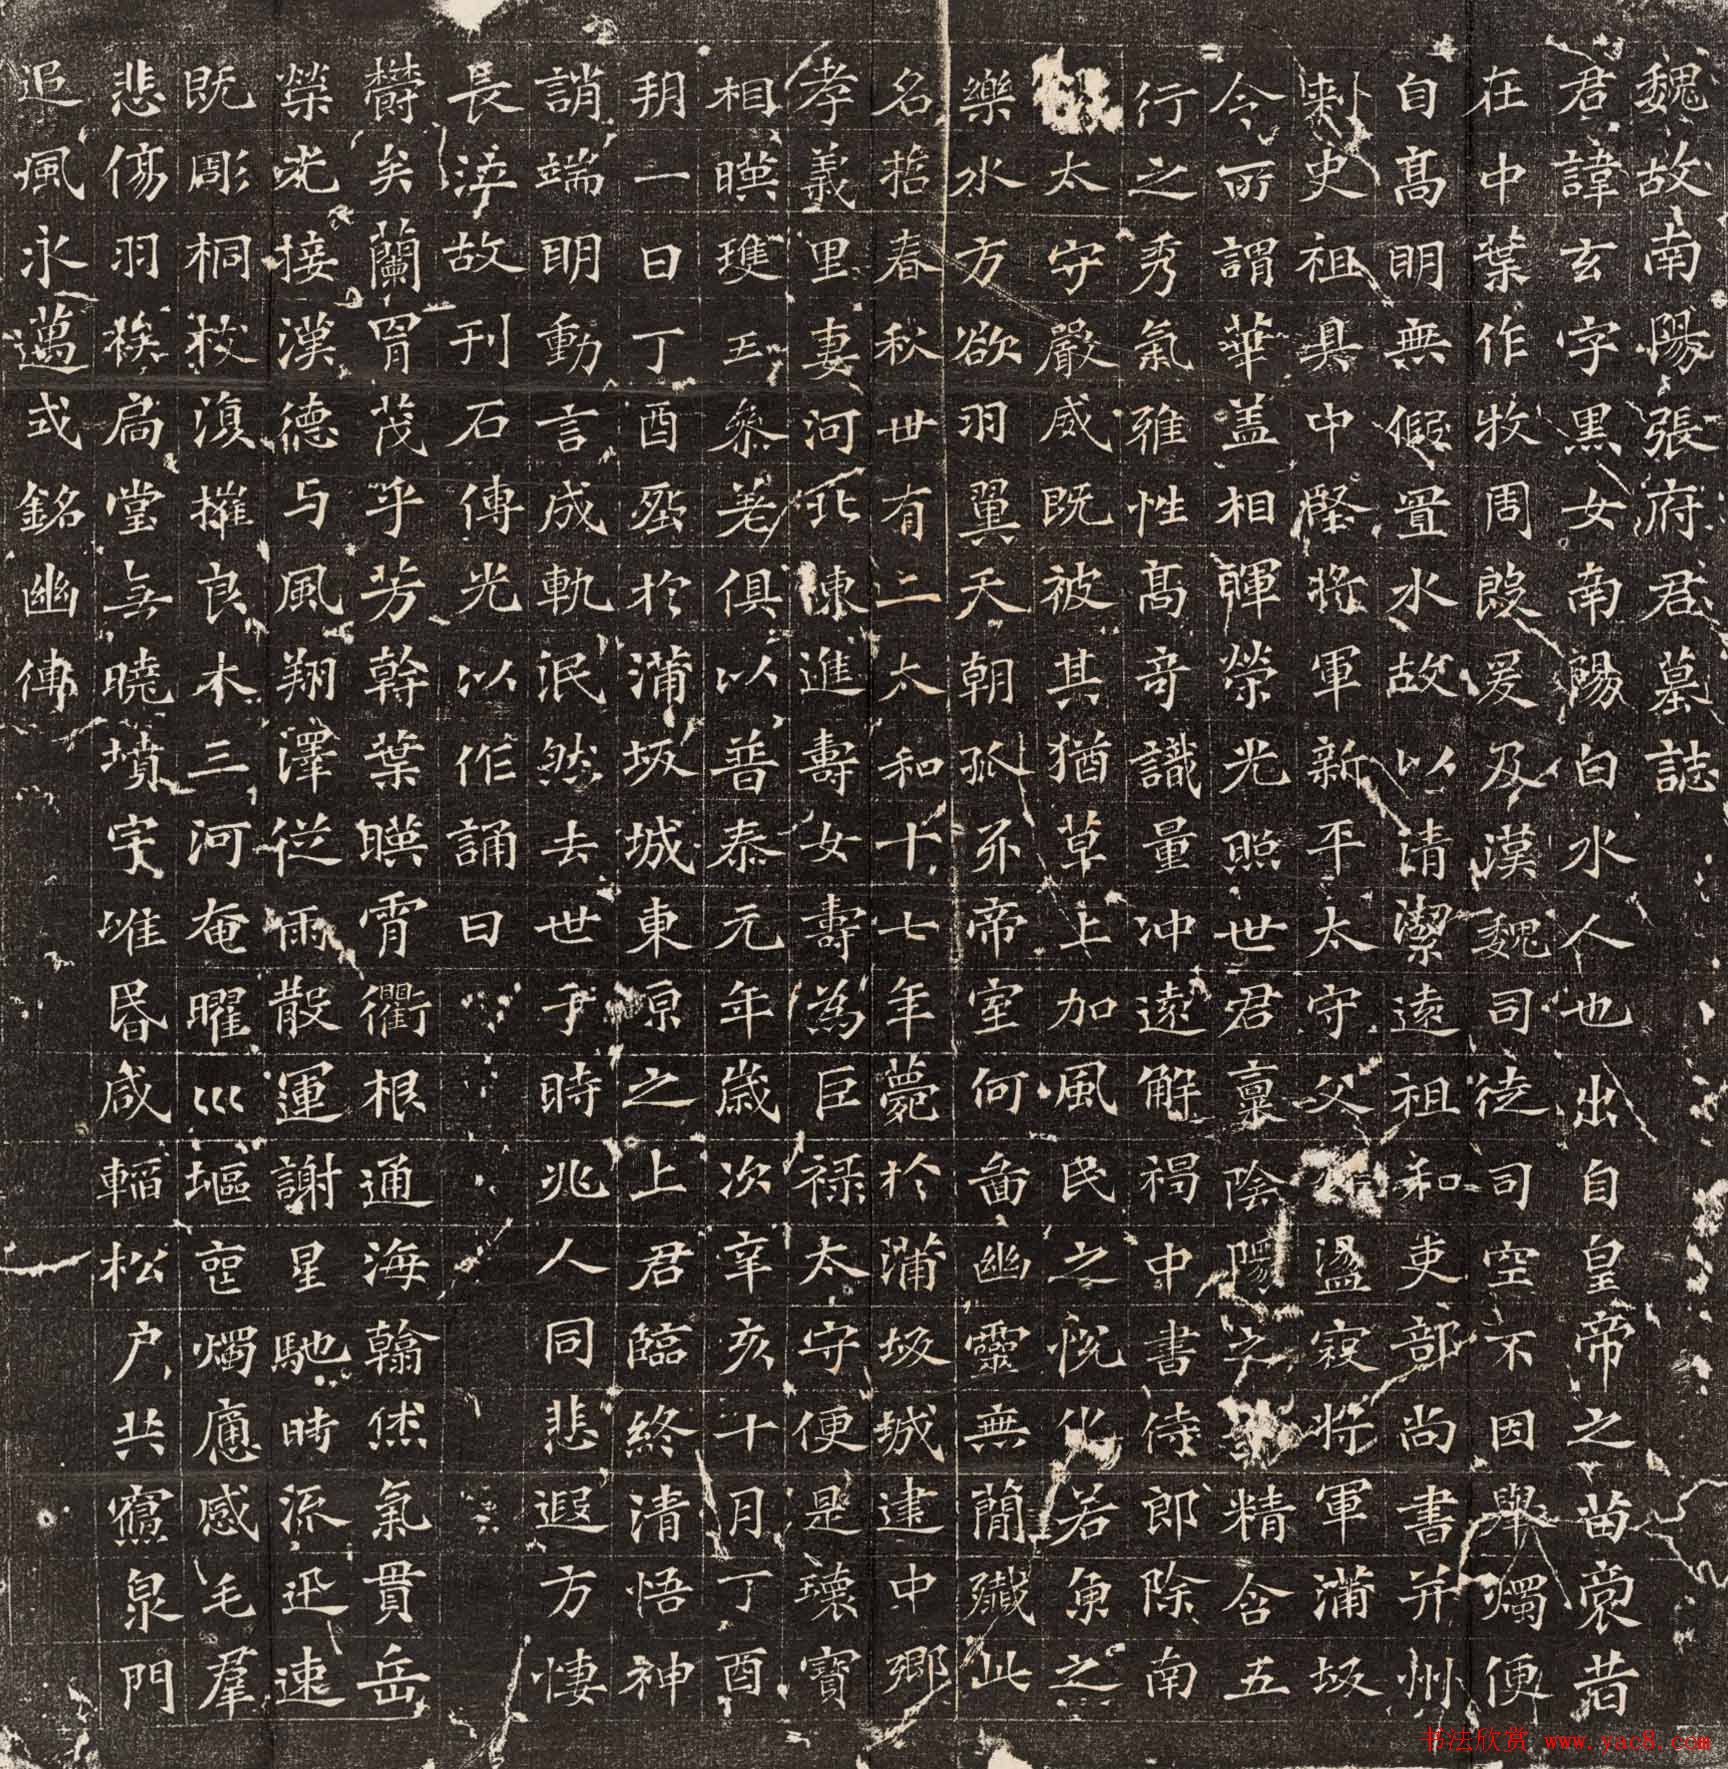 魏故南陽張府君墓誌
君諱玄字黑女南陽白水人也出自皇帝之苗裔昔
在中葉作牧周殷爰及漢魏司徒司空不因舉燭便
自高明無假置水故以清潔遠祖和吏部尚書并州
刺史祖具中堅將軍新平太守父盪寇將軍蒲坂
令所謂華蓋相暉榮光照世君稟陰陽之精含五
行之秀氣雅性高奇識量沖遠解褐中書侍郎除南
太守嚴威既被其猶草上加風民之悅化若魚之
樂水方欲羽翼天朝抓牙帝室何圖幽靈無簡殲此
名哲春秋卅有二太和十七年薨於蒲坂城建中鄉
孝義里妻河北陳進壽女壽為巨祿太守便是瓌寶
相暎瓊玉參差俱以普泰元年歲次辛亥十月丁酉
朔一日丁酉葬於蒲坂城東原之上君臨終清悟神
誚端明動言成軌泯然去世于時兆人同悲遐方悽
長泣故刊石傳光以作誦曰
鬱矣蘭冑茂乎芳幹葉暎霄衢根通海翰烋氣貫岳
榮光接漢德与風翔澤從雨散運謝星馳時流迅速
既彫桐枝復摧良木三河奄曜巛塸喪燭痛感毛羣
悲傷羽族扃堂無曉墳宇唯昏咸輼松户共寢泉門
追風永邁式銘幽傳
书法欣赏 www.yac8.com